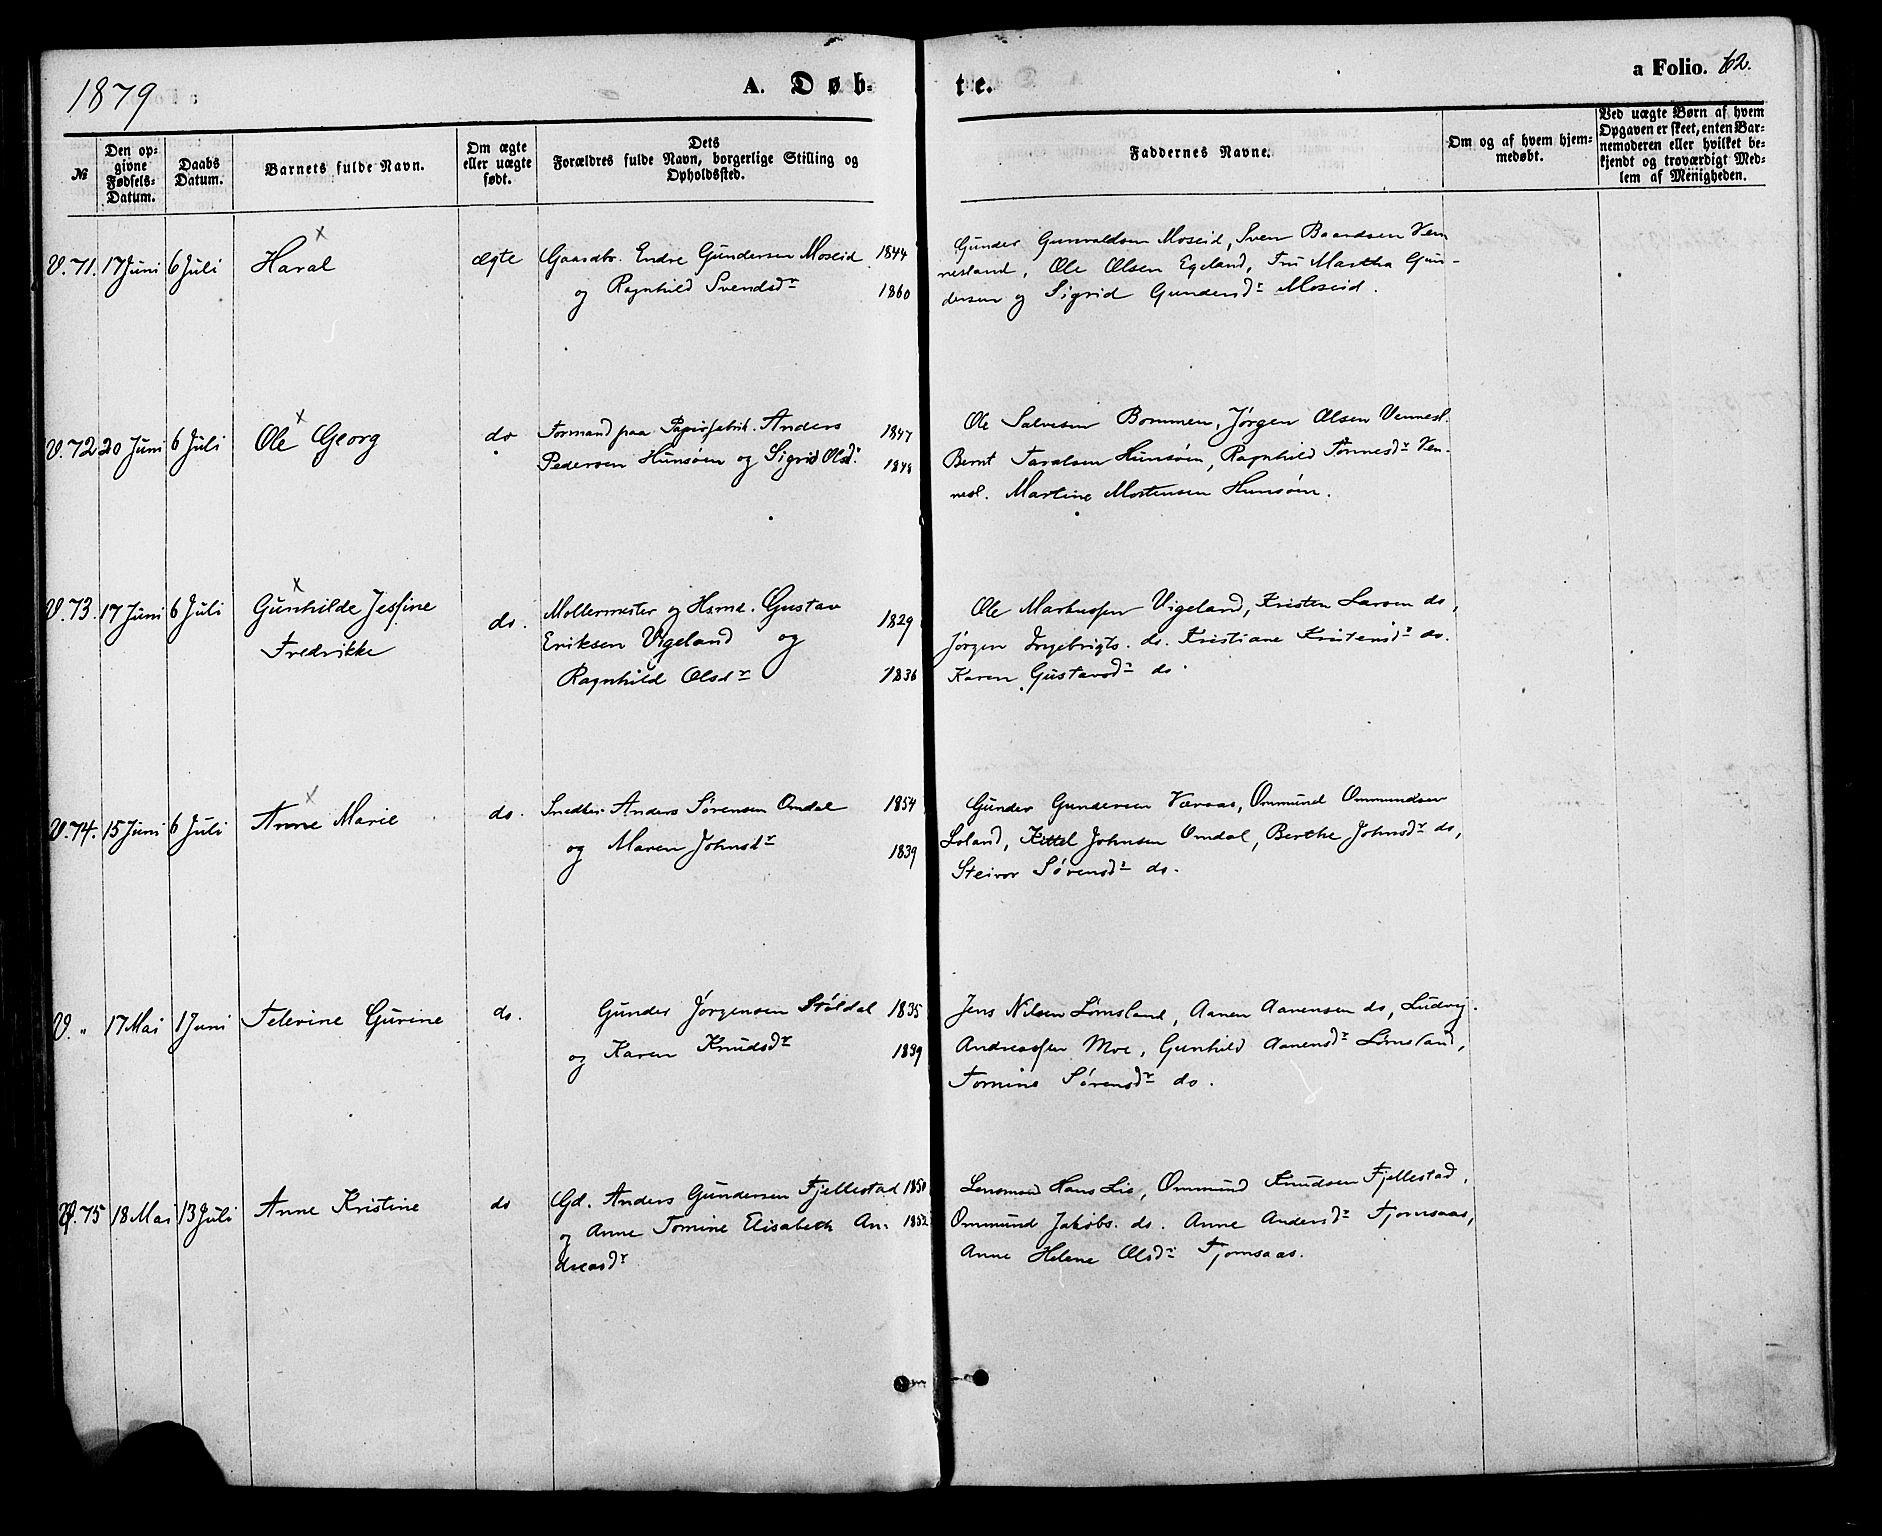 1879
A. Døb-
te.
a Folio. 62.
№
Den opgivne Fødsels-Datum.
Daabs Datum.
Barnets fulde Navn.
Om ægte eller uægte født.
Dets Forældres fulde Navn, borgerlige Stilling og Opholdssted.
Faddernes Navne.
Om og af hvem hjemmedøbt.
Ved uægte Børn af hvem Opgaven er skeet, enten Barnemoderen eller hvilket bekjendt og troværdigt Medlem af Menigheden.
V. 71. 17 Juni 6 Juli Haral ægte Gaardbr. Endre Gundersen Moseid 1844
og Ragnhild Svendsdr 1860
Gunder Gunvaldsen Moseid, Sven Baardsen Ven
nesland, Ole Olsen Egeland, Fru Martha Gun-
dersen og Sigrid Gundersdr Moseid.
V. 72 20 Juni 6 Juli Ole Georg do Formand paa Papirfabrik. Anders 1847
Pedersen Hunsøen og Sigrid Olsdr 1848
Ole Salvesen Bommen, Jørgen Olsen Vennesl.
Bernt Taralsen Hunsøen, Ragnhild Tønnesdr Ven-
nesl. Martine Mortensen Hunsøen.
V. 73. 17 Juni 6 Juli Gunhilde Jessine
Fredrikke do. Møllermester og Hsmd. Gustav 1829
Eriksen Vigeland og
Ragnhild Olsdr 1836
Ole Markussen Vigeland, Kristen Larsen do,
Jørgen Ingebrigts. do. Kristiane Kristensdr do.
Karen Gustavsdr do.
V. 74. 15 Juni 6 Juli Anne Marie do. Snedker Anders Sørensen Omdal 1854
og Maren Johnsdr 1839
Gunder Gundersen Væraas, Ommund Ommundsen
Loland, Kittel Johnsen Omdal, Berthe Johnsdr do,
Steivor Sørensdr do.
V. " 17 Mai 1 Juni Televine Gurine do. Gunder Jørgensen Støldal 1835
og Karen Knudsdr 1839
Jens Nilsen Lømsland, Aanen Aanensen do, Ludvig
Andreassen Moe, Gunhild Aanensdr Lømsland,
Tomine Sørensdr do.
V. 75 18 Mai 13 Juli Anne Kristine do Gd. Anders Gundersen Fjellestad 1850
og Anne Tomine Elisabeth An- 1852
dreasdr
Lensmand Hans Lie, Ommund Knudsen Fjellestad,
Ommund Jakobs. do. Anne Andersdr Fjomsaas,
Anne Helene Olsdr Fjomsaas.